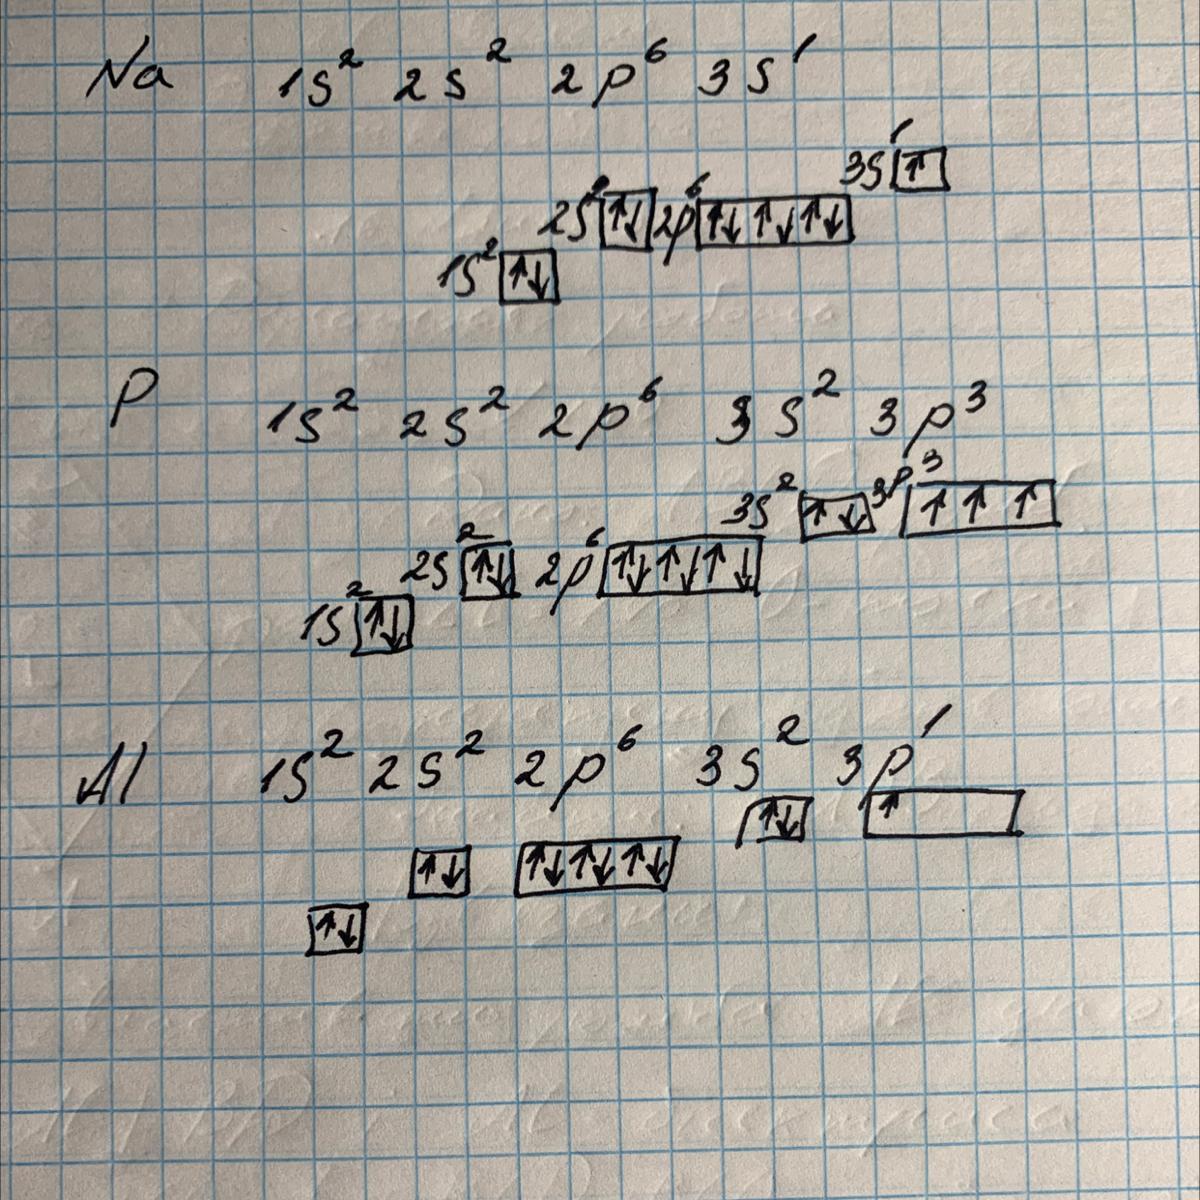 Na 1s² 2s² 2p⁶ 3s¹
3s¹ ↑
2s² ↑↓ 2p⁶ ↑↓ ↑↓ ↑↓
1s² ↑↓
P 1s² 2s² 2p⁶ 3s² 3p³
3s² ↑↓ 3p³ ↑ ↑ ↑
2s² ↑↓ 2p⁶ ↑↓ ↑↓ ↑↓
1s² ↑↓
Al 1s² 2s² 2p⁶ 3s² 3p¹
↑↓ ↑
↑↓ ↑↓ ↑↓ ↑↓
↑↓